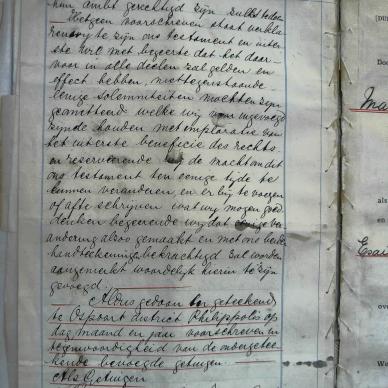 hun ambt gerechtigd zijn zulks te doen
Hetgeen voorschreven staat verkla
ren wij te zijn ons testament en uiter
ste wil met begeerte dat het daar
voor in alle deelen zal gelden en
effect hebben, niettegenstaande
eenige solemniteiten mochten zijn
geomitteerd welke wij voor ingevoegd
zijnde houden met imploratie van
het uiterste beneficie des rechts
en reserveerende de macht om dit
ons testament ten eenige tijde te
kunnen veranderen en er bij te voegen
of af te schrijven wat wij mogen goed
denken begeerende wij dat eenige ver
andering alzoo gemaakt en met ons beide
handteekening bekrachtigd zal worden
aangemerkt woordelijk hierin te zijn
gevoegd.
Aldus gedaan en geteekend
te Ospoort district Philippolis op
dag maand en jaar voorschreven in
tegenwoordigheid van de meergetee
kende bevoegde getuigen.
Als Getuigen
[DU
Do
Ma
als
Esai
over
We